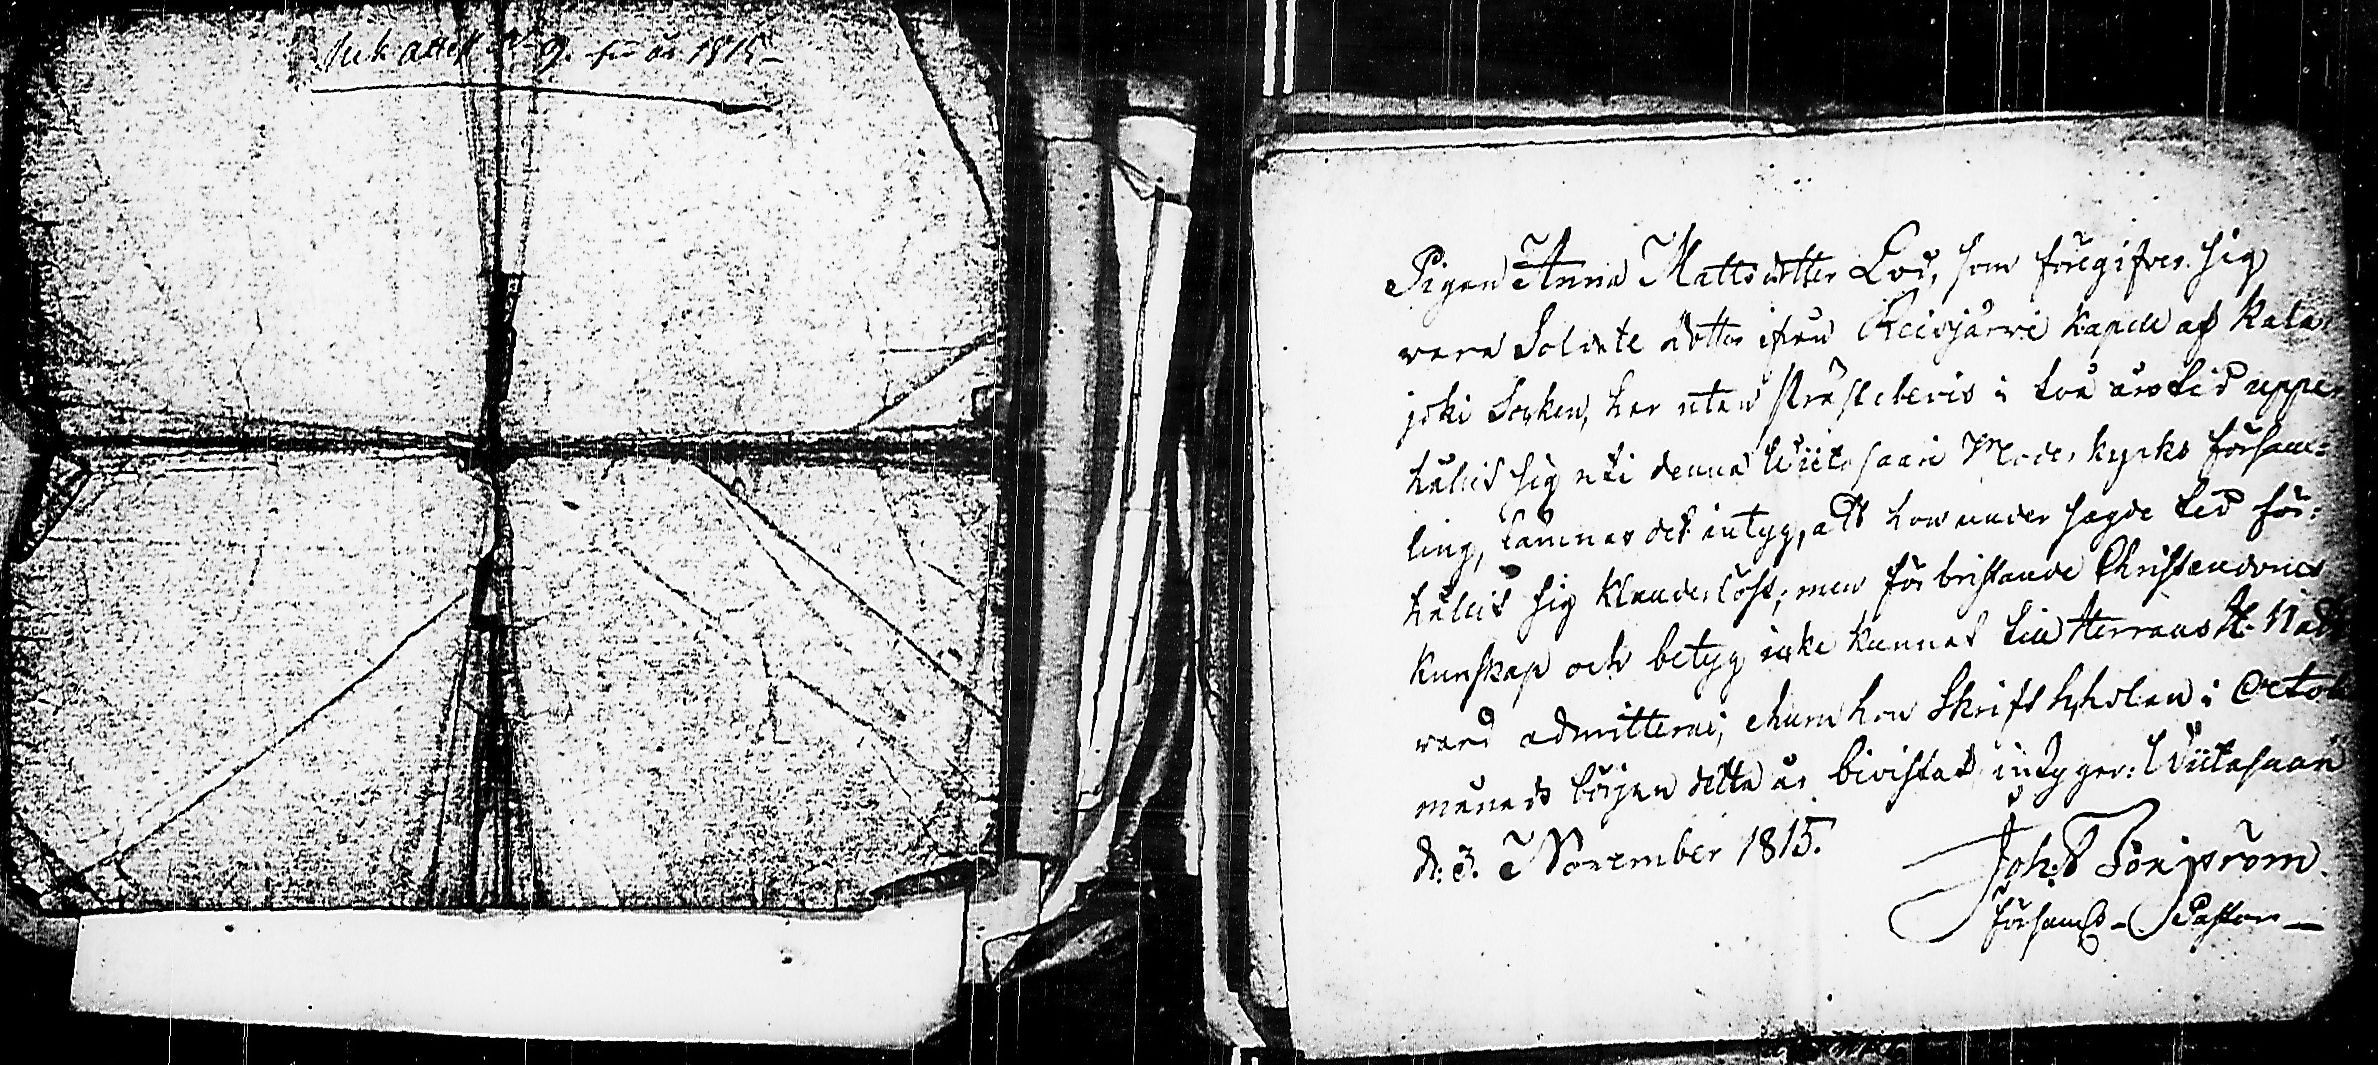 attest N. 9. för år 1815
Pigan Anna Mattsdotter Lod, som föregifver sig
vara Soldate dotter ifrån Reisjärvi Kapell af Kala-
joki Socken, har utan Prästebevis i två års tid uppe-
hållit sig uti denna Wiitasaari Moderkyrko försam-
ling, lämnas det intyg, att hon under sagde tid för-
hållit sig klanderlöst; men för bristande Christendoms
kunskap och betyg icke kunnat till Herrans H. Natt-
vard admitteras, ehuru hon Skriftskolan i October
månads början detta år bivistat intygar. Wiitasaari
d. 3. November 1815.
Joh:
Församl. Pastor